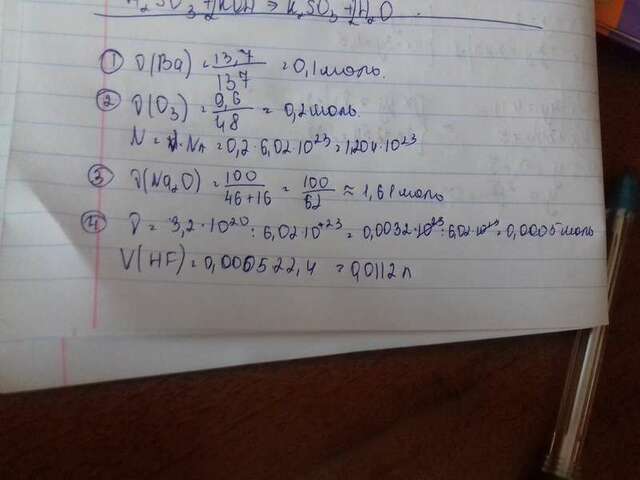 H₂SO₃ + 2KOH → K₂SO₃ + 2H₂O
① ν(Ba) = 13,7 / 137 = 0,1 моль.
② ν(O₃) = 9,6 / 48 = 0,2 моль.
N = ν·Nₐ = 0,2·6,02·10²³ = 1,204·10²³
③ ν(Na₂O) = 100 / 46+16 = 100 / 62 ≈ 1,61 моль
④ ν = 3,2·10²⁰ : 6,02·10⁺²³ = 0,0032·10²³ : 6,02·10²³ = 0,0005 моль
V(HF) = 0,0005·22,4 = 0,0112 л